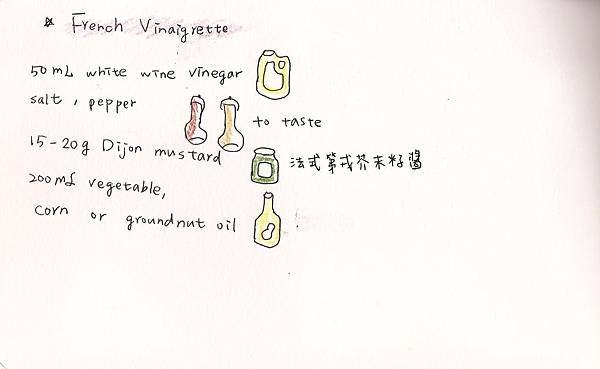 * French Vinaigrette
50mL white wine vinegar
salt, pepper
to taste
15-20g Dijon mustard 法式第戎芥末籽醬
200mL vegetable,
corn or groundnut oil